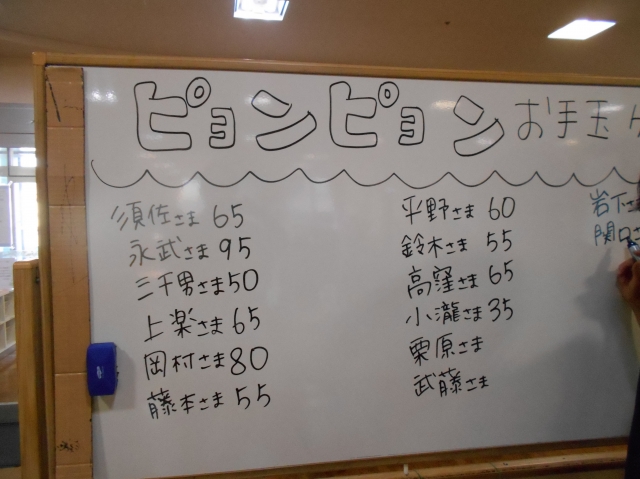 ピョンピョン お手玉
須佐さま 65
永武さま 95
三千男さま 50
上楽さま 65
岡村さま 80
藤本さま 55
平野さま 60
鈴木さま 55
高窪さま 65
小瀧さま 35
栗原さま
武藤さま
岩下さ
関口さ